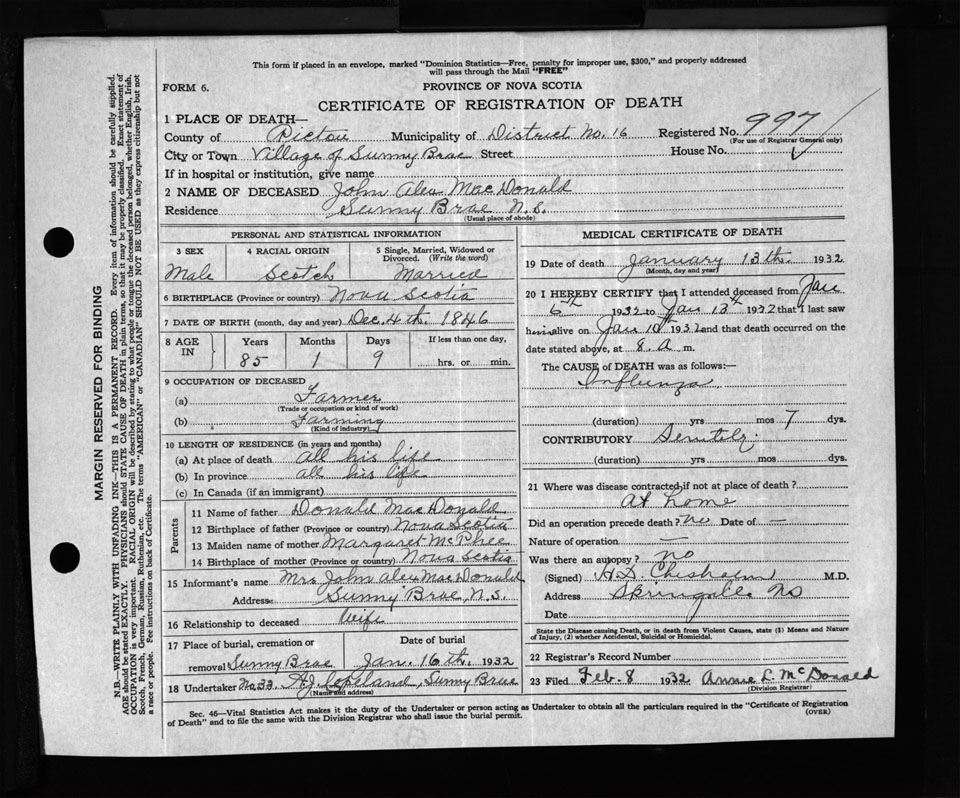 This form if placed in an envelope, marked "Dominion Statistics—Free, penalty for improper use, $300," and properly addressed
will pass through the Mail "FREE"
FORM 6.
PROVINCE OF NOVA SCOTIA
CERTIFICATE OF REGISTRATION OF DEATH
1 PLACE OF DEATH—
County of Pictou Municipality of District No. 16 Registered No. 997
(For use of Registrar General only)
City or Town Village of Sunny Brae Street House No.
If in hospital or institution, give name
2 NAME OF DECEASED John Alex MacDonald
Residence Sunny Brae N.S.
(Usual place of abode)
PERSONAL AND STATISTICAL INFORMATION
3 SEX 4 RACIAL ORIGIN 5 Single, Married, Widowed or
Divorced. (Write the word)
Male Scotch Married
6 BIRTHPLACE (Province or country) Nova Scotia
7 DATE OF BIRTH (month, day and year) Dec. 4th. 1846
8 AGE IN Years Months Days If less than one day,
85 1 9 hrs. or min.
9 OCCUPATION OF DECEASED
(a) Farmer
(Trade or occupation or kind of work)
(b) Farming
(Kind of industry)
10 LENGTH OF RESIDENCE (in years and months)
(a) At place of death all his life
(b) In province all his life
(c) In Canada (if an immigrant)
Parents
11 Name of father Donald MacDonald
12 Birthplace of father (Province or country) Nova Scotia
13 Maiden name of mother Margaret McPhee
14 Birthplace of mother (Province or country) Nova Scotia
15 Informant's name Mrs John Alex MacDonald
Address Sunny Brae, N.S.
16 Relationship to deceased Wife
17 Place of burial, cremation or Date of burial
removal Sunny Brae Jan. 16th. 1932
18 Undertaker No. 33 A J Copeland, Sunny Brae
(Name and address)
MEDICAL CERTIFICATE OF DEATH
19 Date of death January 13th. 1932
(Month, day and year)
20 I HEREBY CERTIFY that I attended deceased from Jan
6th 1932 to Jan 13th 1932 that I last saw
him alive on Jan 10th 1932 and that death occurred on the
date stated above, at 8. A m.
The CAUSE of DEATH was as follows:—
Influenza
(duration) yrs mos 7 dys.
CONTRIBUTORY
(duration) yrs mos dys.
21 Where was disease contracted if not at place of death?
At home
Did an operation precede death? no Date of —
Nature of operation —
Was there an autopsy? no
(Signed) H.D. Chisholm M.D.
Address
Date
State the Disease causing Death, or in death from Violent Causes, state (1) Means and Nature
of Injury, (2) whether Accidental, Suicidal or Homicidal.
22 Registrar's Record Number
23 Filed Feb. 8 1932 Annie L McDonald
(Division Registrar)
Sec. 46—Vital Statistics Act makes it the duty of the Undertaker or person acting as Undertaker to obtain all the particulars required in the "Certificate of Registration
of Death" and to file the same with the Division Registrar who shall issue the burial permit.
(OVER)
MARGIN RESERVED FOR BINDING
N.B.—WRITE PLAINLY WITH UNFADING INK—THIS IS A PERMANENT RECORD. Every item of information should be carefully supplied.
AGE should be stated EXACTLY. PHYSICIANS should STATE CAUSE OF DEATH in plain terms, so that it may be properly classified. Exact statement of
OCCUPATION is very important. RACIAL ORIGIN will be described by stating to what people or tongue the deceased person belonged, whether English, Irish,
Scotch, French, German, Russian, Ruthenian, etc. The terms "AMERICAN" or "CANADIAN" SHOULD NOT BE USED as they express citizenship but not
a race or people. See instructions on back of Certificate.